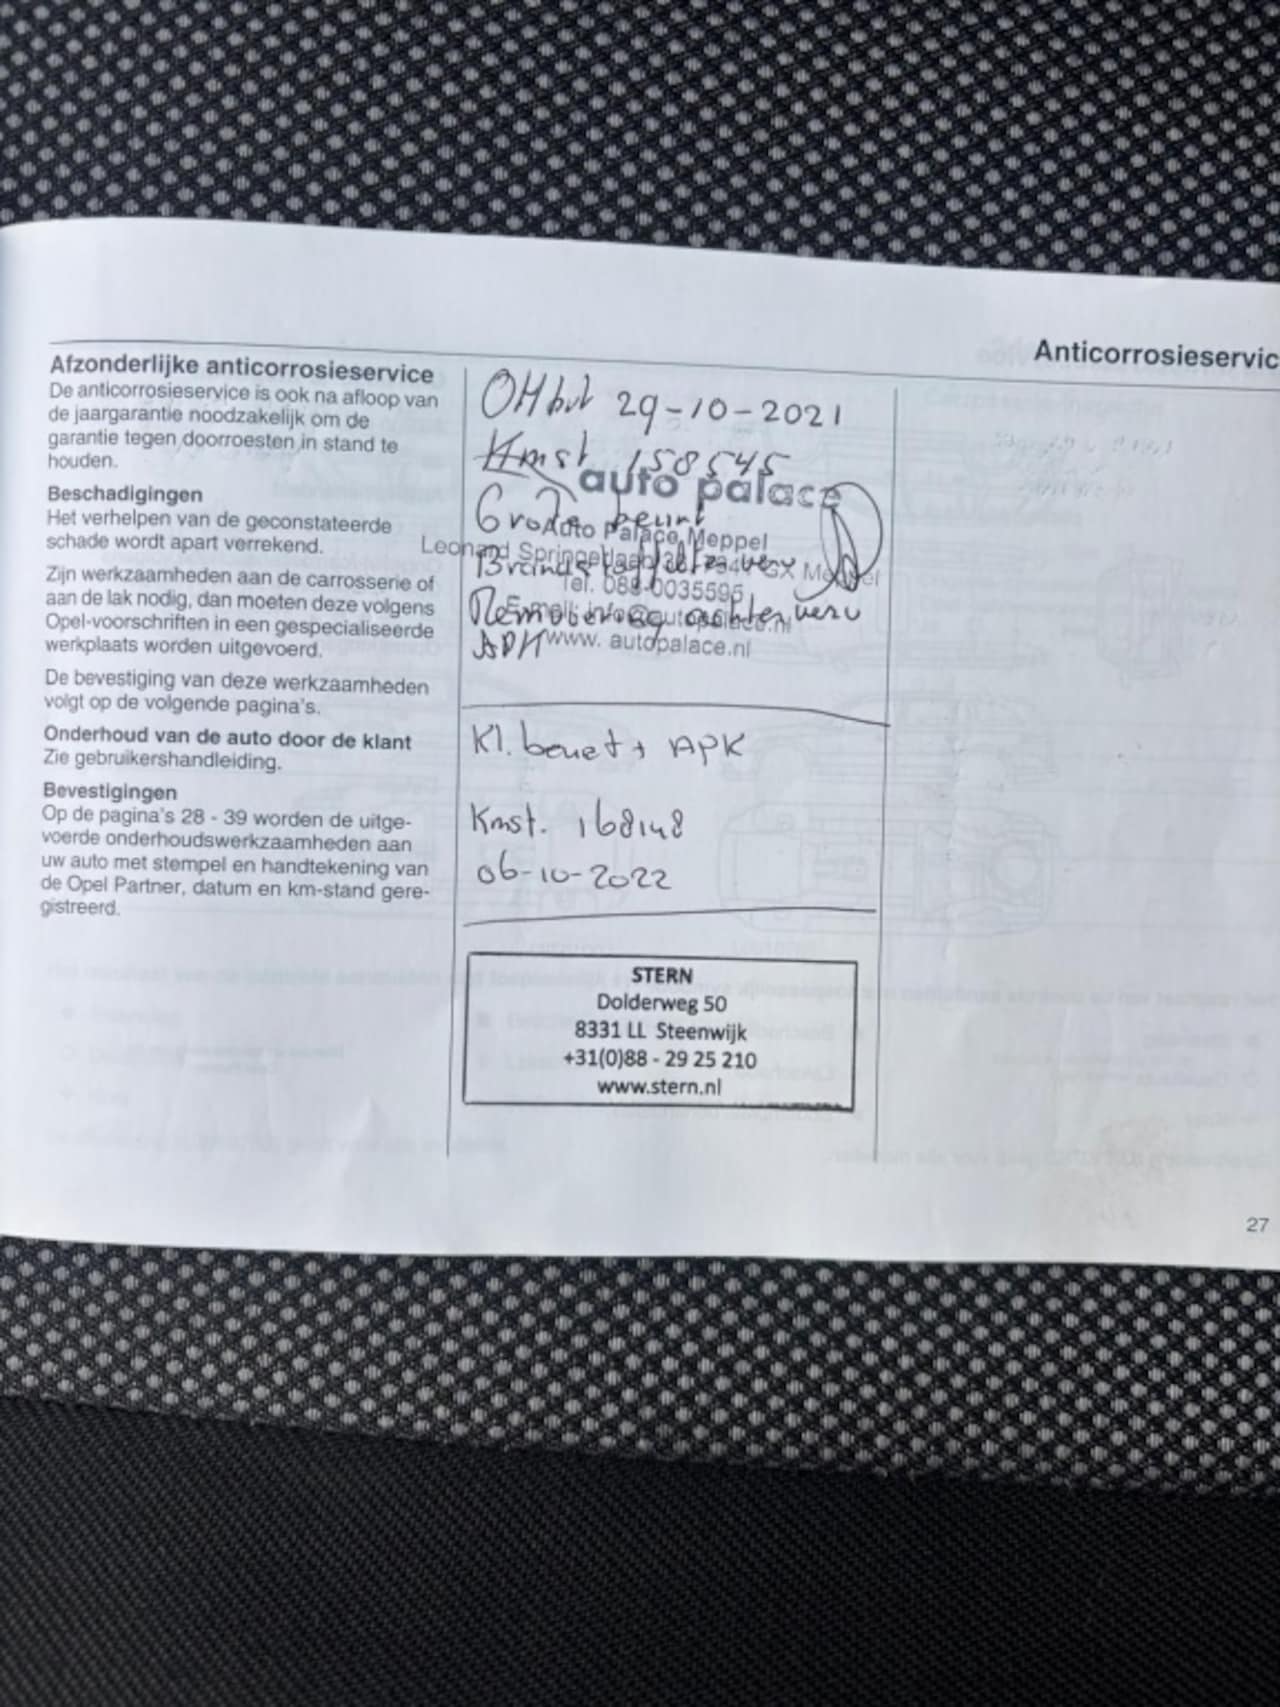 Anticorrosieservic
Afzonderlijke anticorrosieservice
De anticorrosieservice is ook na afloop van
de jaargarantie noodzakelijk om de
garantie tegen doorroesten in stand te
houden.
Beschadigingen
Het verhelpen van de geconstateerde
schade wordt apart verrekend.
Zijn werkzaamheden aan de carrosserie of
aan de lak nodig, dan moeten deze volgens
Opel-voorschriften in een gespecialiseerde
werkplaats worden uitgevoerd.
De bevestiging van deze werkzaamheden
volgt op de volgende pagina's.
Onderhoud van de auto door de klant
Zie gebruikershandleiding.
Bevestigingen
Op de pagina's 28 - 39 worden de uitge-
voerde onderhoudswerkzaamheden aan
uw auto met stempel en handtekening van
de Opel Partner, datum en km-stand gere-
gistreerd.
29-10-2021
Kmst 158545
auto palace
Grote beurt
Auto Palace Meppel
Tel. 088-0035595
Remmen achter verv
APK
www. autopalace.nl
Kl. beurt + APK
Kmst. 168148
06-10-2022
STERN
Dolderweg 50
8331 LL Steenwijk
+31(0)88 - 29 25 210
www.stern.nl
27